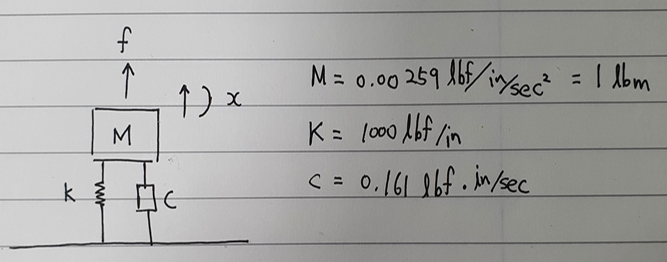 f
x
M
K
C
M = 0.00259 lbf/in/sec² = 1 lbm
K = 1000 lbf/in
C = 0.161 lbf · in/sec